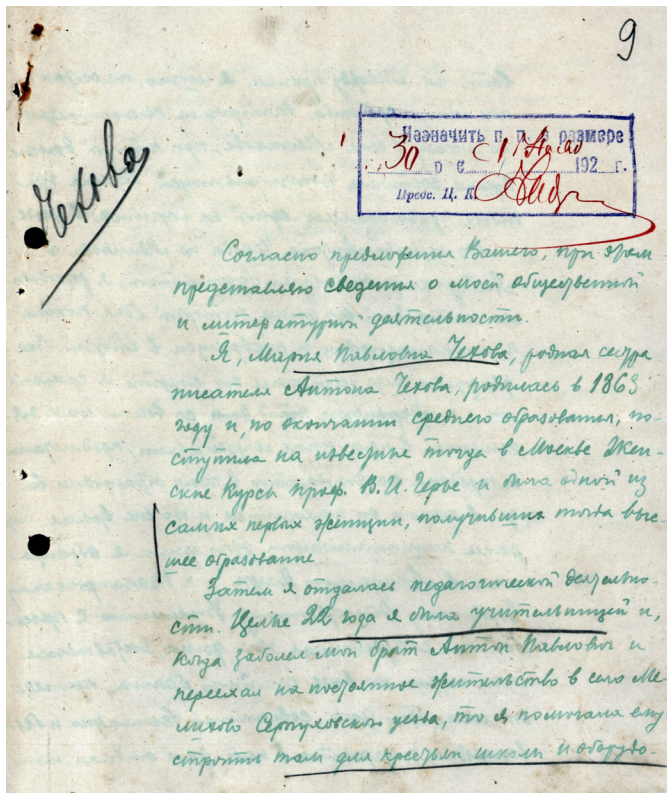 9
Чехова
Назначить п. п. в размере
30 р с 1/ 192 г.
Предс. Ц. К.
Согласно предложения Вашего, при этом
представляю сведения о моей общественной
и литературной деятельности.
Я, Мария Павловна Чехова, родная сестра
писателя Антона Чехова, родилась в 1863
году и, по окончании среднего образования, по-
ступила на известные тогда в Москве Жен-
ские Курсы проф. В. И. Герье и была одной из
самых первых женщин, получивших тогда выс-
шее образование.
Затем я отдалась педагогической деятельно-
сти. Целые 22 года я была учительницей и,
когда заболел мой брат Антон Павлович и
переехал на постоянное жительство в село Ме-
лихово Серпуховского уезда, то я помогала ему
строить там для крестьян школы и оборудо-